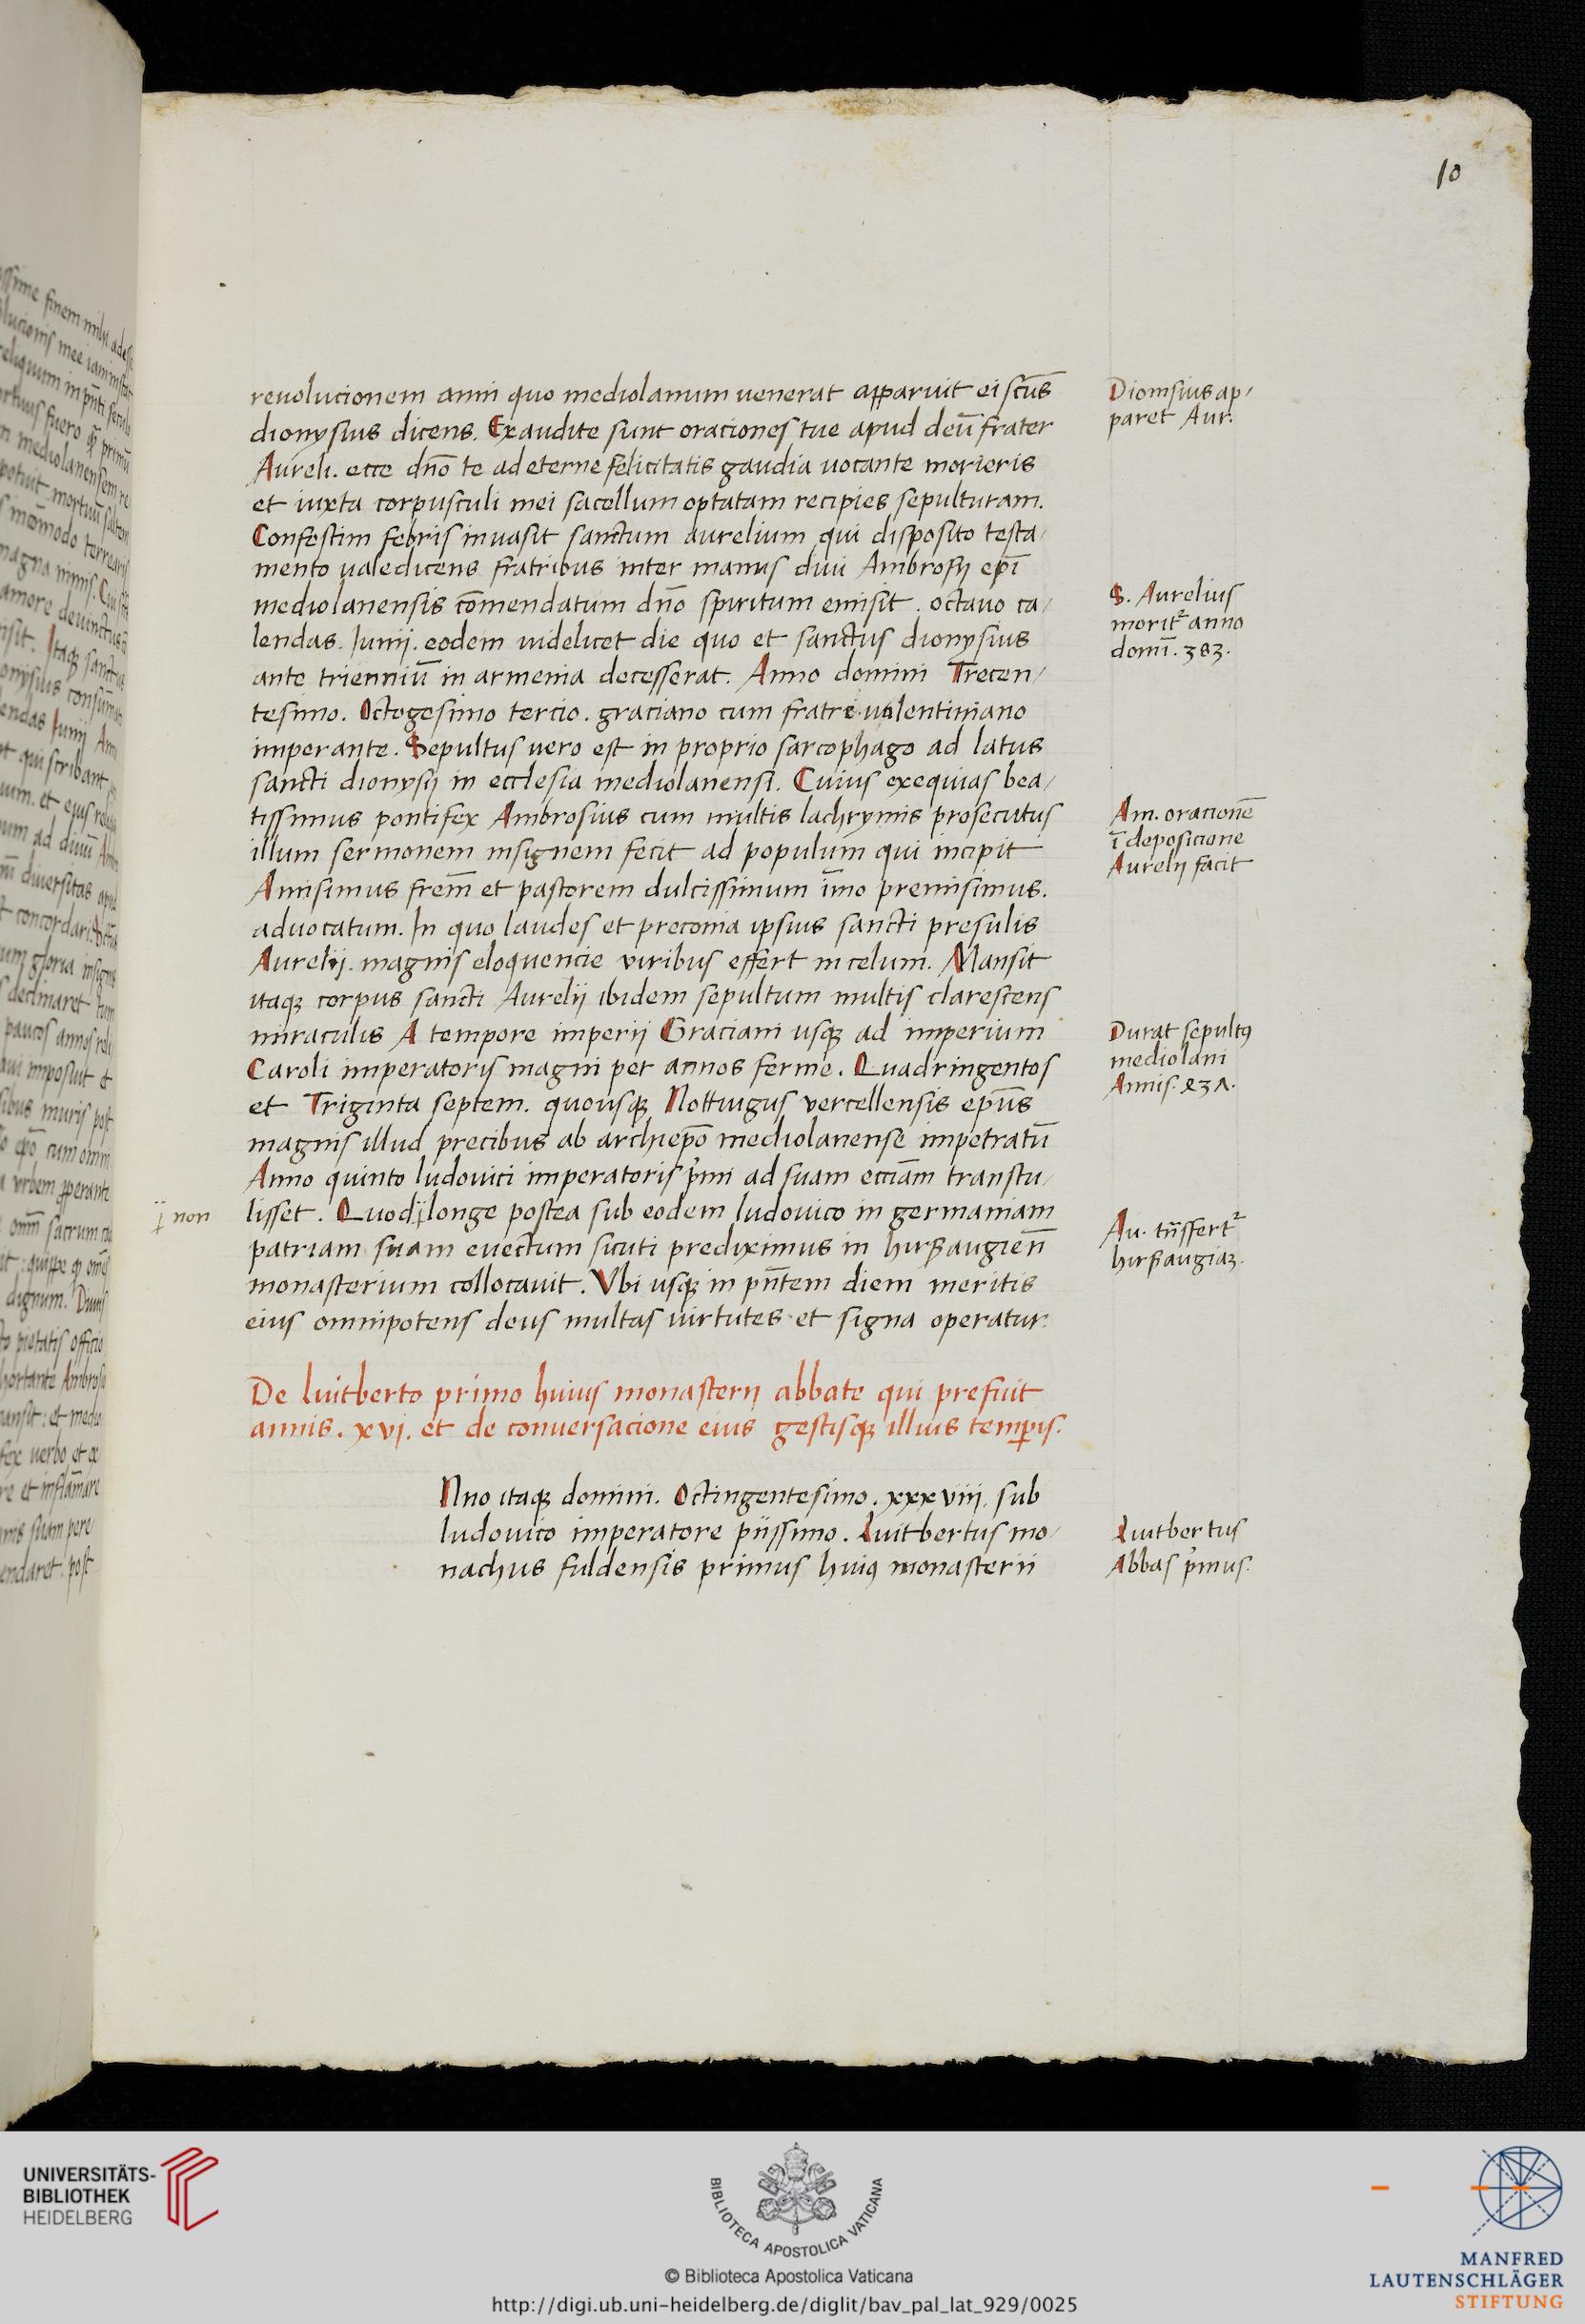 10
reuolucionem anni quo mediolanum venerat apparuit ei sctūs
dionysius dicens. Exaudite sunt oraciones tue apud deū frater
Aureli. ecce dnō te ad eterne felicitatis gaudia uocante morieris
et iuxta corpusculi mei sacellum optatam recipies sepulturam.
Confestim febris inuasit sanctum aurelium qui disposito testa/
mento ualedicens fratribus inter manus diui Ambrosij epī
mediolanensis cōmendatum dnō spiritum emisit. octauo ca/
lendas. Iunij. eodem uidelicet die quo et sanctus dionysius
ante trienniū in armenia decesserat. Anno domini Trecen/
tesimo. Octogesimo tercio. graciano cum fratre valentiniano
imperante. Sepultus uero est in proprio sarcophago ad latus
sancti dionysij in ecclesia mediolanensi. Cuius exequias bea/
tissimus pontifex Ambrosius cum multis lachrymis prosecutus
illum sermonem insignem fecit ad populum qui incipit
Amisimus frēm et pastorem dulcissimum īmo premisimus.
aduocatum. In quo laudes et preconia ipsius sancti presulis
Aurelij. magnis eloquencie viribus effert in celum. Mansit
itaqȝ corpus sancti Aurelij ibidem sepultum multis clarescens
miraculis A tempore imperii Graciani usqȝ ad imperium
Caroli imperatoris magni per annos ferme. Quadringentos
et Triginta septem. quousqȝ Nottingus vercellensis ep̄us
magnis illud precibus ab archiep̄o mediolanense impetratū
Anno quinto ludouici imperatoris p̄mi ad suam eccīam transtu/
lisset. Quod longe postea sub eodem ludouico in germaniam
patriam suam euectum sicuti prediximus in hirßaugien̄
monasterium collocauit. Vbi usqȝ in pn̄tem diem meritis
eius omnipotens deus multas uirtutes et signa operatur.
De luitberto primo huius monasterij abbate qui prefuit
annis. xvj. et de conuersacione eius gestisqȝ illius temp̄is.
Nno itaqȝ domini. Octingentesimo. xxxviij. sub
ludouico imperatore piissimo. Luitbertus mo/
nachus fuldensis primus huiꝰ monasterii
Dionisius ap/
paret Aur.
S. Aurelius
morit² anno
domī. 383.
Am. oracionē
ī deposicione
Aurelij facit
Durat sepultꝰ
mediolani
Annis. 437.
non
Au. tn̄sfert²
hirßaugiaȝ.
Luitbertus
Abbas p̄mus.
UNIVERSITÄTS-
BIBLIOTHEK
HEIDELBERG
BIBLIOTECA APOSTOLICA VATICANA
© Biblioteca Apostolica Vaticana
http://digi.ub.uni-heidelberg.de/diglit/bav_pal_lat_929/0025
MANFRED
LAUTENSCHLÄGER
STIFTUNG